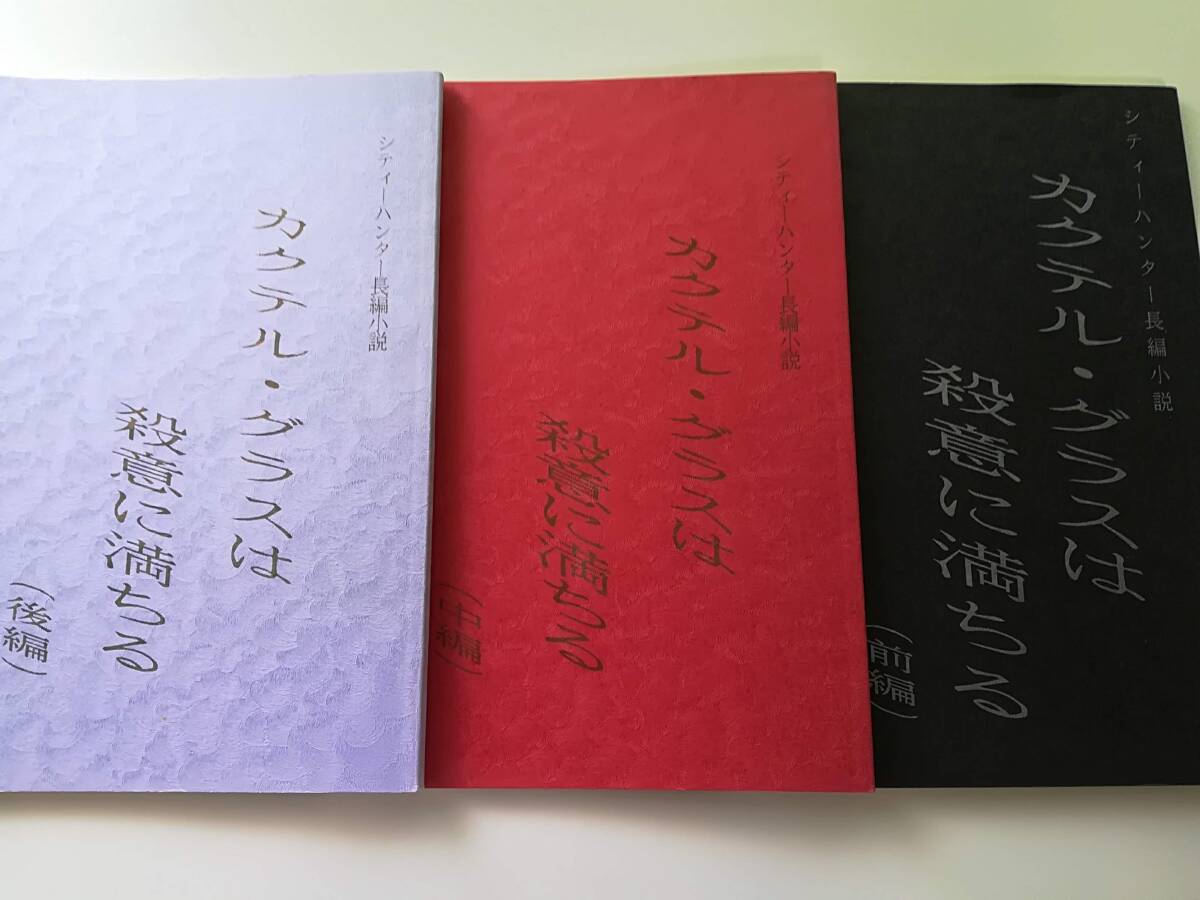 シティーハンター長編小説
カクテル・グラスは
殺意に満ちる
(前編)
シティーハンター長編小説
カクテル・グラスは
殺意に満ちる
(中編)
シティーハンター長編小説
カクテル・グラスは
殺意に満ちる
(後編)